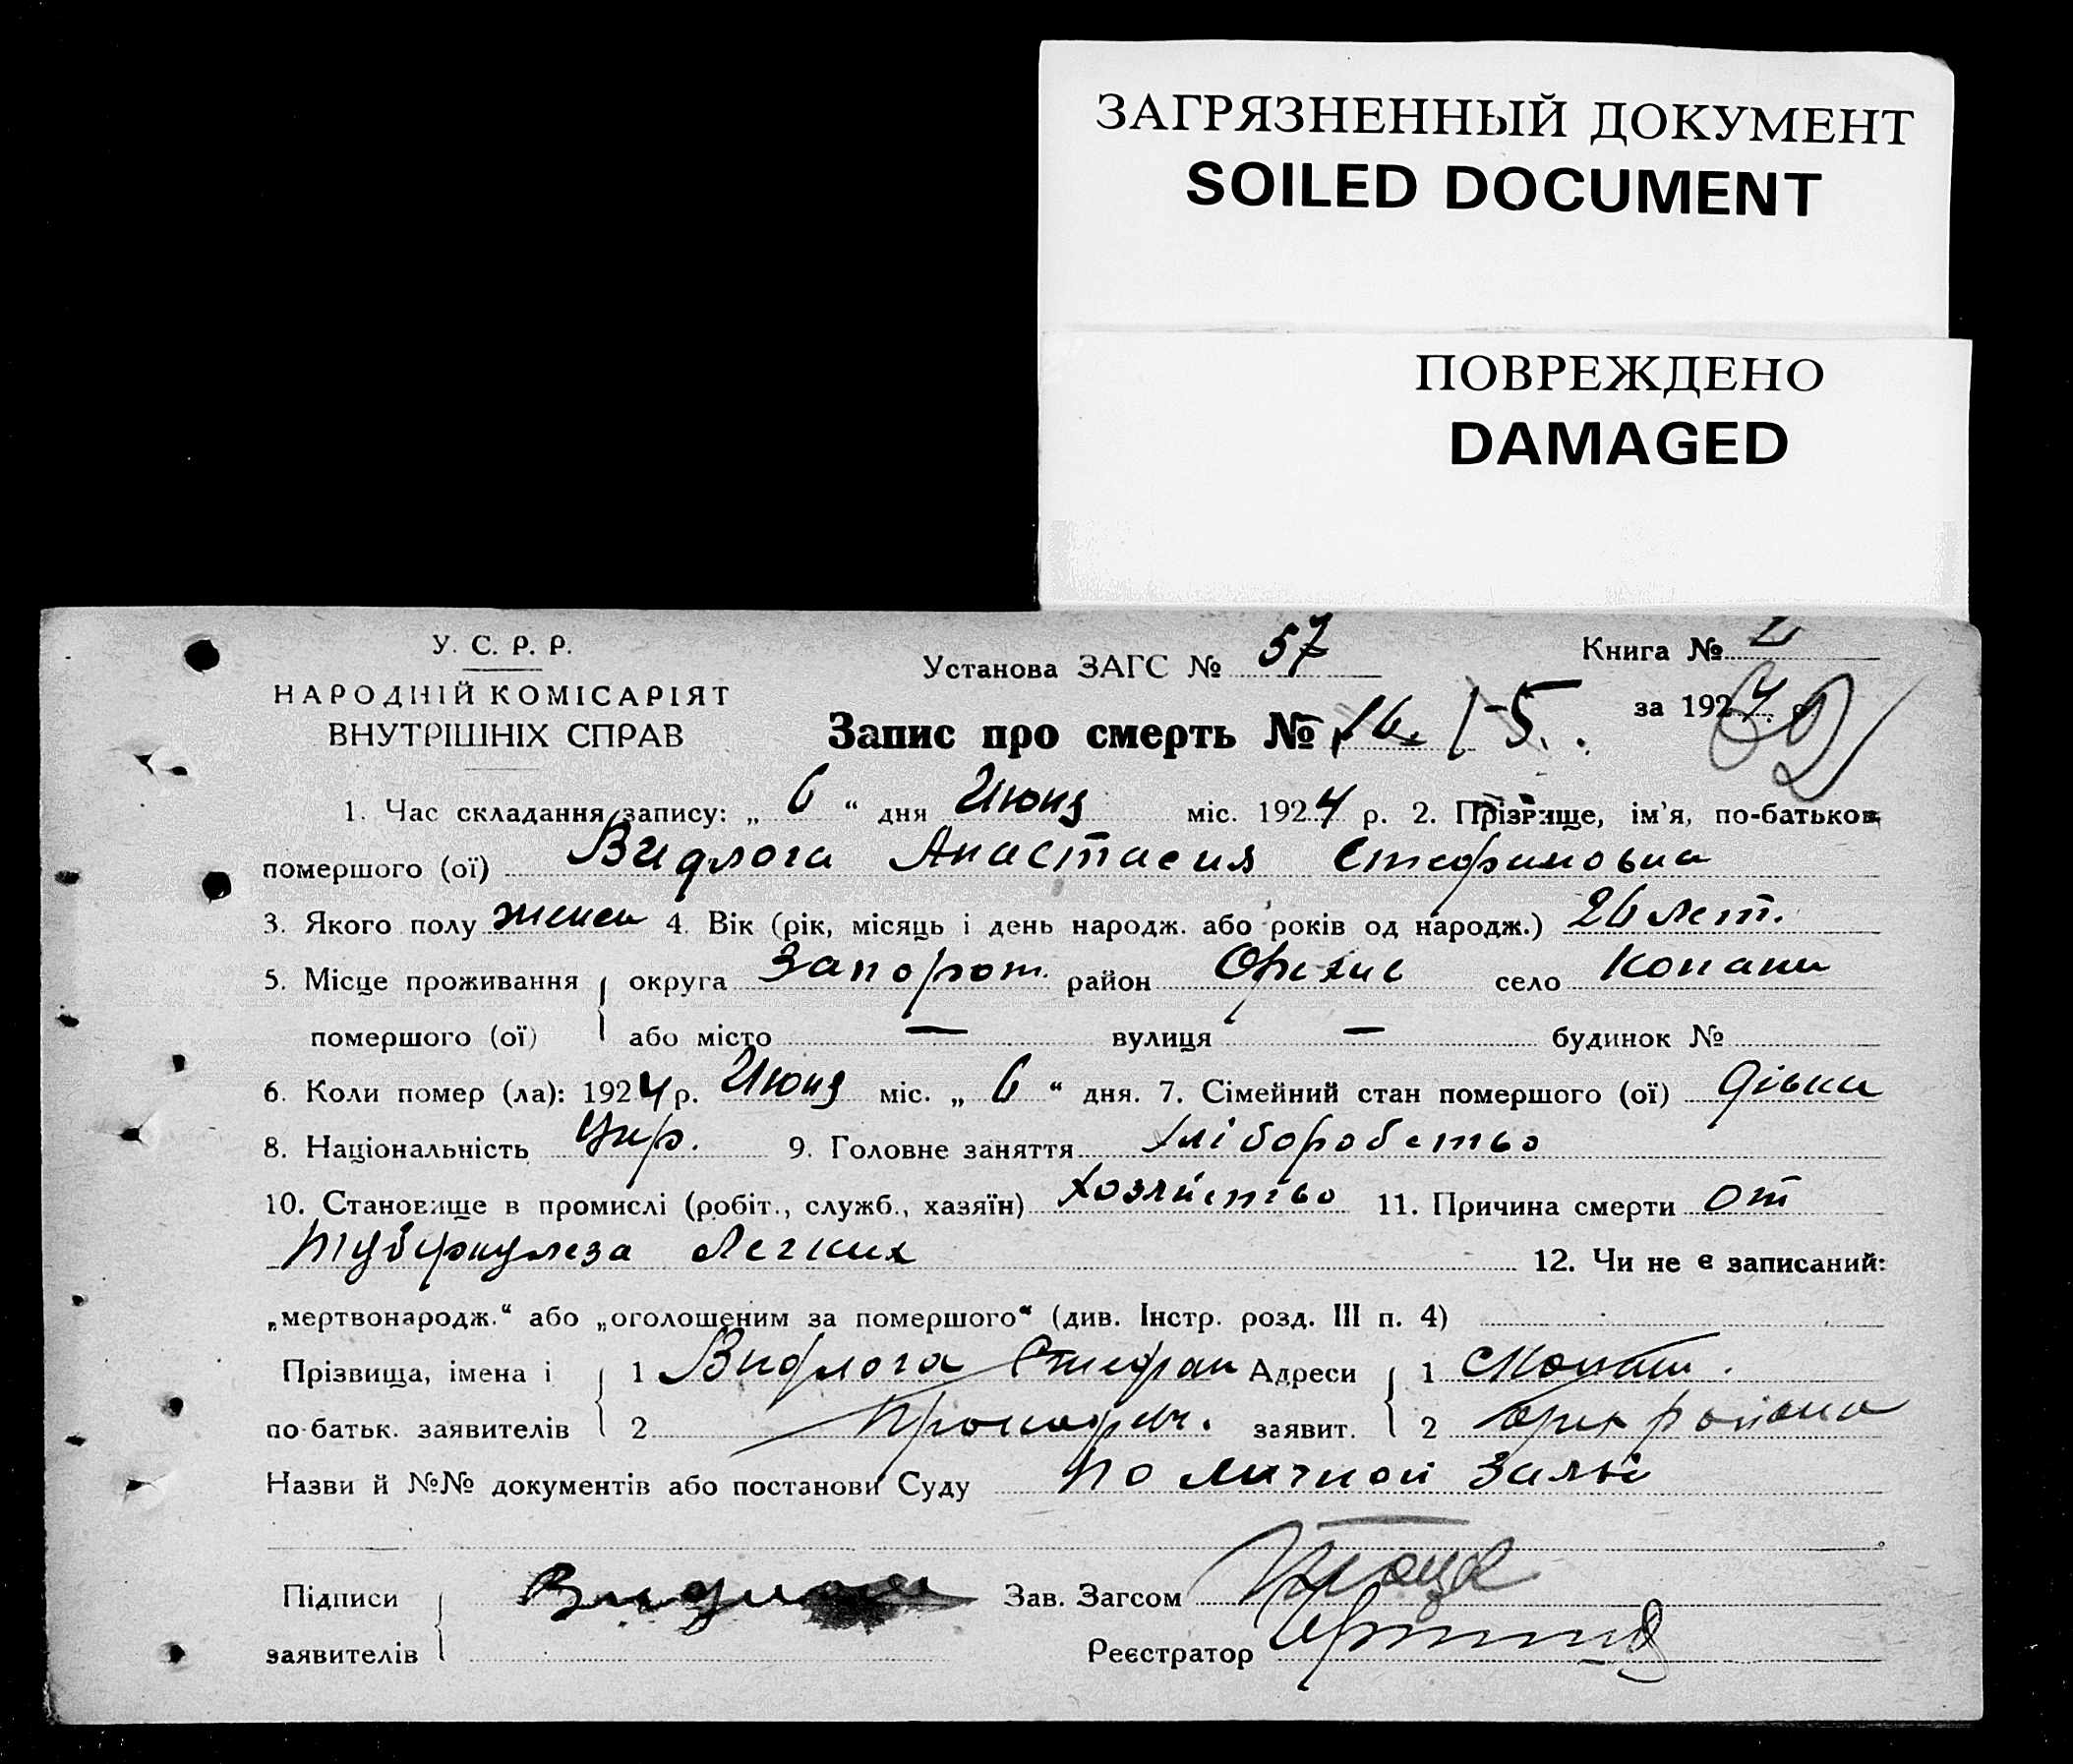 ЗАГРЯЗНЕННЫЙ ДОКУМЕНТ
SOILED DOCUMENT
ПОВРЕЖДЕНО
DAMAGED
У. С. Р. Р.
НАРОДНІЙ КОМІСАРІЯТ
ВНУТРІШНІХ СПРАВ
Установа ЗАГС № 57
Книга № 2
за 1924 р.
Запис про смерть № 16. 15.
1. Час складання запису: „ 6 “ дня Июня міс. 1924 р. 2. Прізвище, ім'я, по-батьков
помершого (ої) Видлога Анастасия Стефановна
3. Якого полу женск 4. Вік (рік, місяць і день народж. або років од народж.) 26 лет.
5. Місце проживання округа Запорож. район Орехив село Копани
помершого (ої) або місто — вулиця — будинок №
6. Коли помер (ла): 1924 р. Июня міс. „ 6 “ дня. 7. Сімейний стан помершого (ої) дівка
8. Національність Укр. 9. Головне заняття хліборобство
10. Становище в промислі (робіт., служб., хазяїн) хозяйство 11. Причина смерти от
туберкулеза Легких 12. Чи не є записаний:
„мертвонародж.“ або „оголошеним за помершого“ (див. Інстр. розд. III п. 4)
Прізвища, імена і 1 Видлога Стефан Адреси 1 с Копани.
по-батьк. заявителів 2 Прокофьев. заявит. 2 Орех района
Назви й №№ документів або постанови Суду по личной заяві
Підписи Видлога Зав. Загсом
заявителів Реєстратор